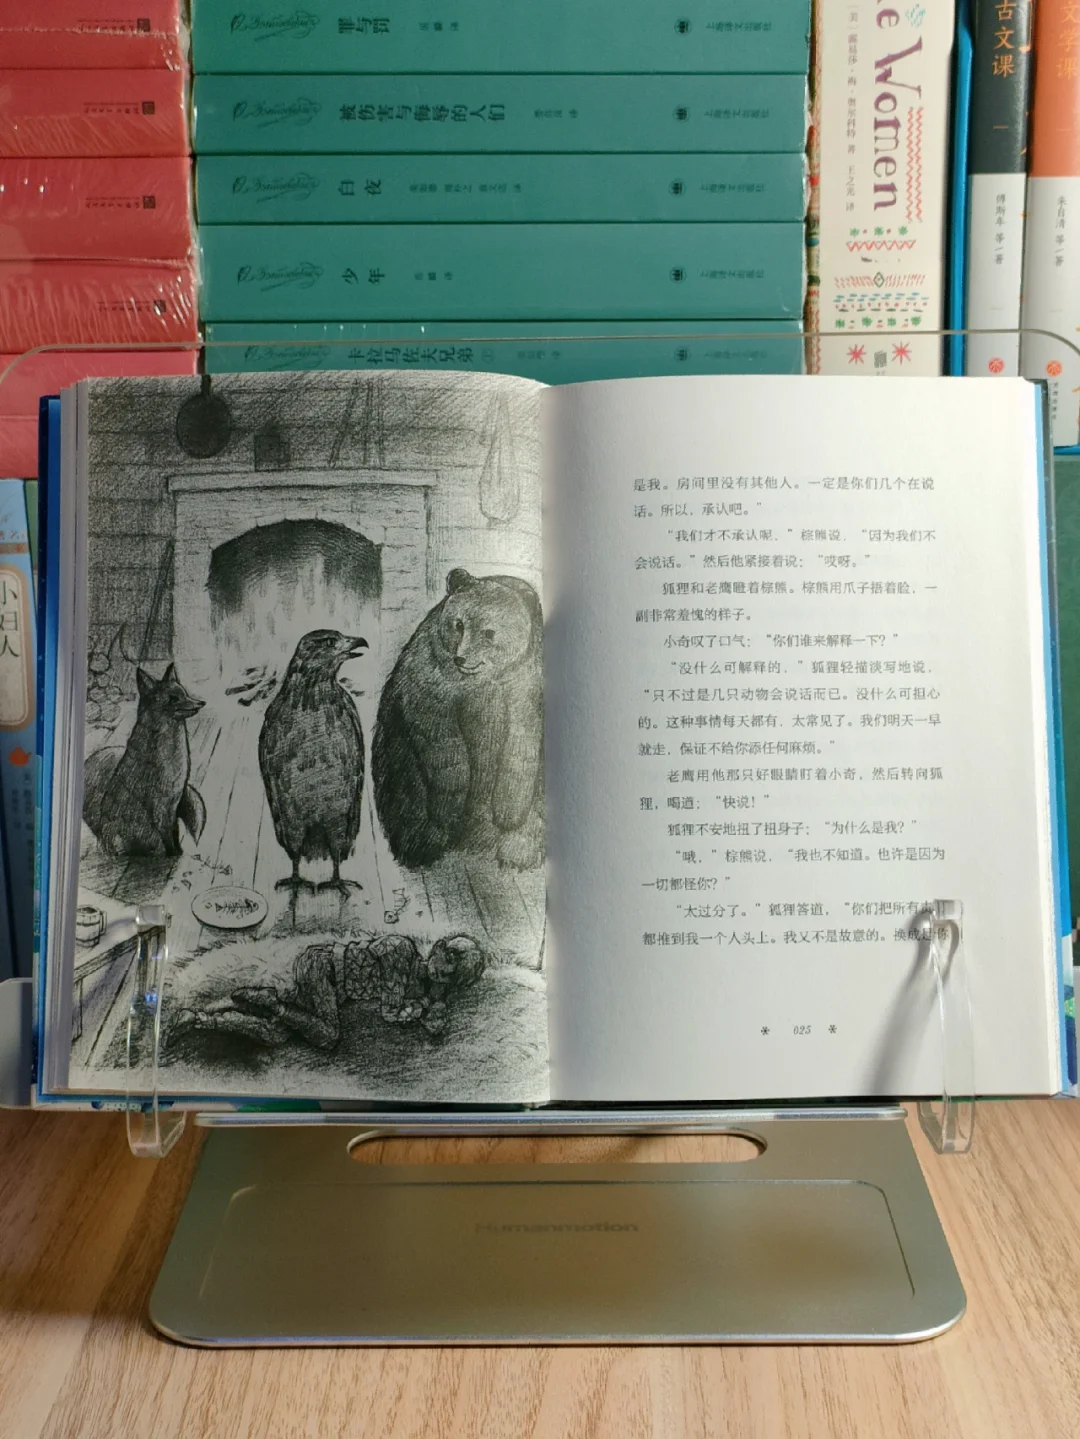 罪与罚
上海译文出版社
被伤害与侮辱的人们
上海译文出版社
白夜
上海译文出版社
少年
上海译文出版社
卡拉马佐夫兄弟
上海译文出版社
Women
王之光 译
古文课
一
傅斯年 等/著
文学课
朱自清 等/著
小妇人
是我。房间里没有其他人。一定是你们几个在说
话。所以，承认吧。”
“我们才不承认呢，”棕熊说，“因为我们不
会说话。”然后他紧接着说：“哎呀。”
狐狸和老鹰瞪着棕熊。棕熊用爪子捂着脸，一
副非常羞愧的样子。
小奇叹了口气：“你们谁来解释一下？”
“没什么可解释的，”狐狸轻描淡写地说，
“只不过是几只动物会说话而已。没什么可担心
的。这种事情每天都有，太常见了。我们明天一早
就走，保证不给你添任何麻烦。”
老鹰用他那只好眼睛盯着小奇，然后转向狐
狸，喝道：“快说！”
狐狸不安地扭了扭身子：“为什么是我？”
“哦，”棕熊说，“我也不知道。也许是因为
一切都怪你？”
“太过分了。”狐狸答道，“你们把所有责任
都推到我一个人头上。我又不是故意的。换成是你
025
Humanmotion